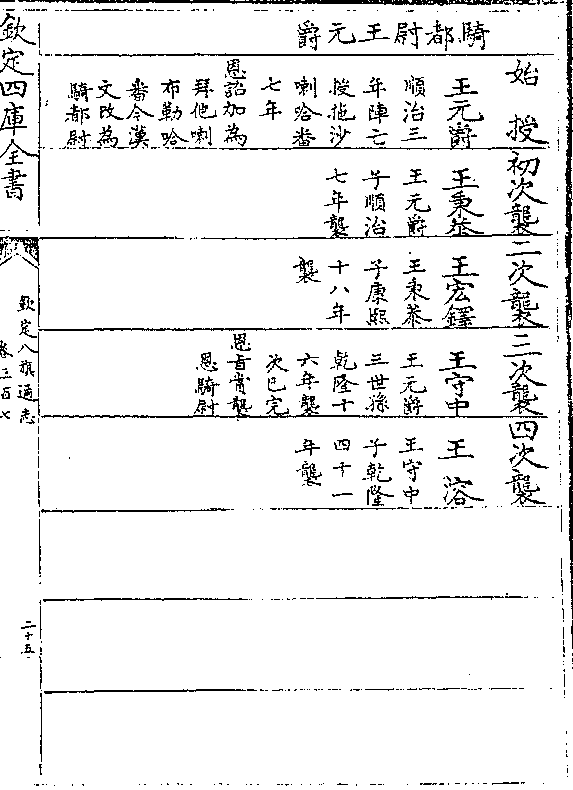 騎都尉王元爵
始授
王元爵
順治三
年陣亡
授拖沙
喇哈番
七年
恩詔加為
拜他喇
布勒哈
番今漢
文改為
騎都尉
初次襲
王秉恭
王元爵
子順治
七年襲
二次襲
王宏鐸
王秉恭
子康熙
十八年
襲
三次襲
王守中
王元爵
三世孫
乾隆十
六年襲
次已完
恩旨賞襲
恩騎尉
四次襲
王溶
王守中
子乾隆
四十一
年襲
欽定四庫全書
欽定八旗通志
卷三百七
二十五